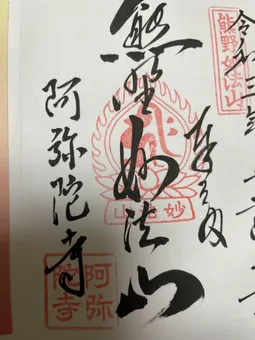 令和
熊野妙法山
奉拝
熊野妙法山
妙 山
阿弥陀寺
阿弥陀寺